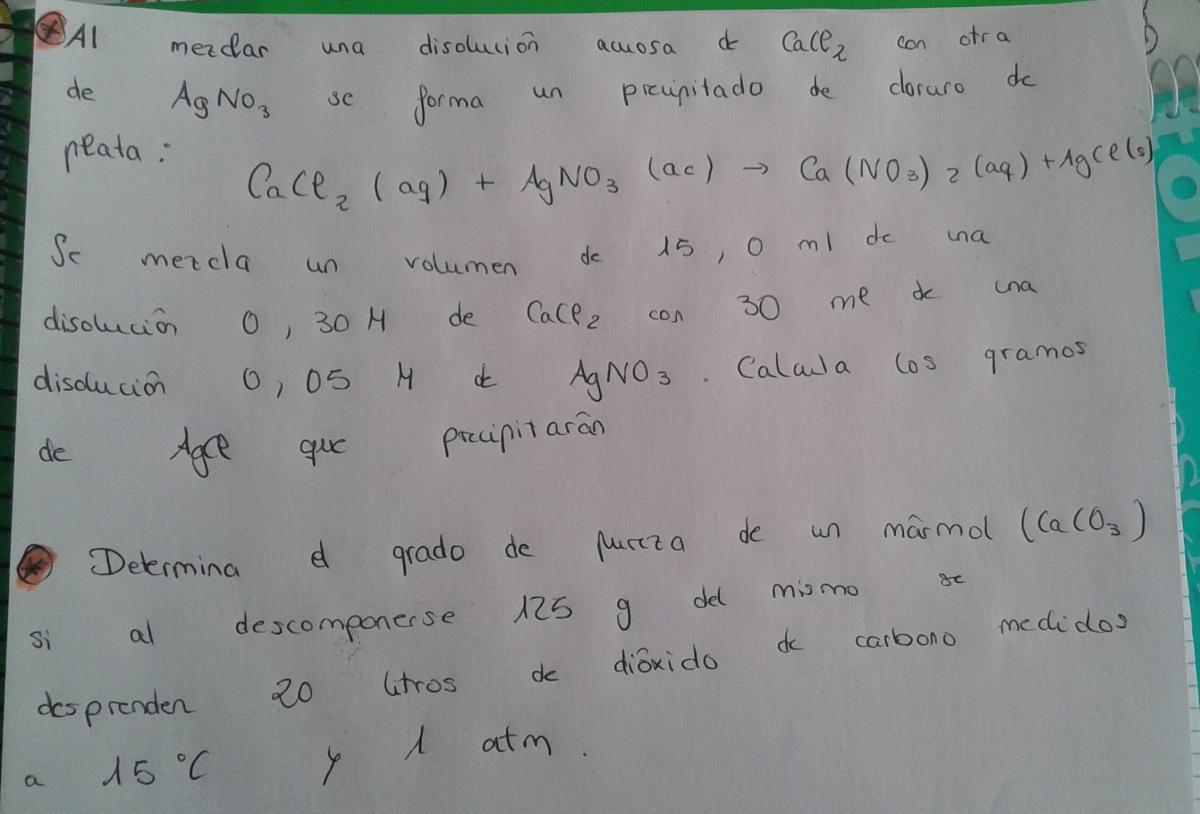 Al mezclar una disolución acuosa de CaCl2 con otra
de AgNO3 se forma un precipitado de cloruro de
plata:
CaCl2 (aq) + AgNO3 (ac) → Ca(NO3)2 (aq) + AgCl(s)
Se mezcla un volumen de 15,0 ml de una
disolución 0,30 M de CaCl2 con 30 ml de una
disolución 0,05 M de AgNO3. Calcula los gramos
de AgCl que precipitarán
Determina el grado de pureza de un mármol (CaCO3)
si al descomponerse 125 g del mismo se
desprenden 20 litros de dióxido de carbono medidos
a 15 °C y 1 atm.